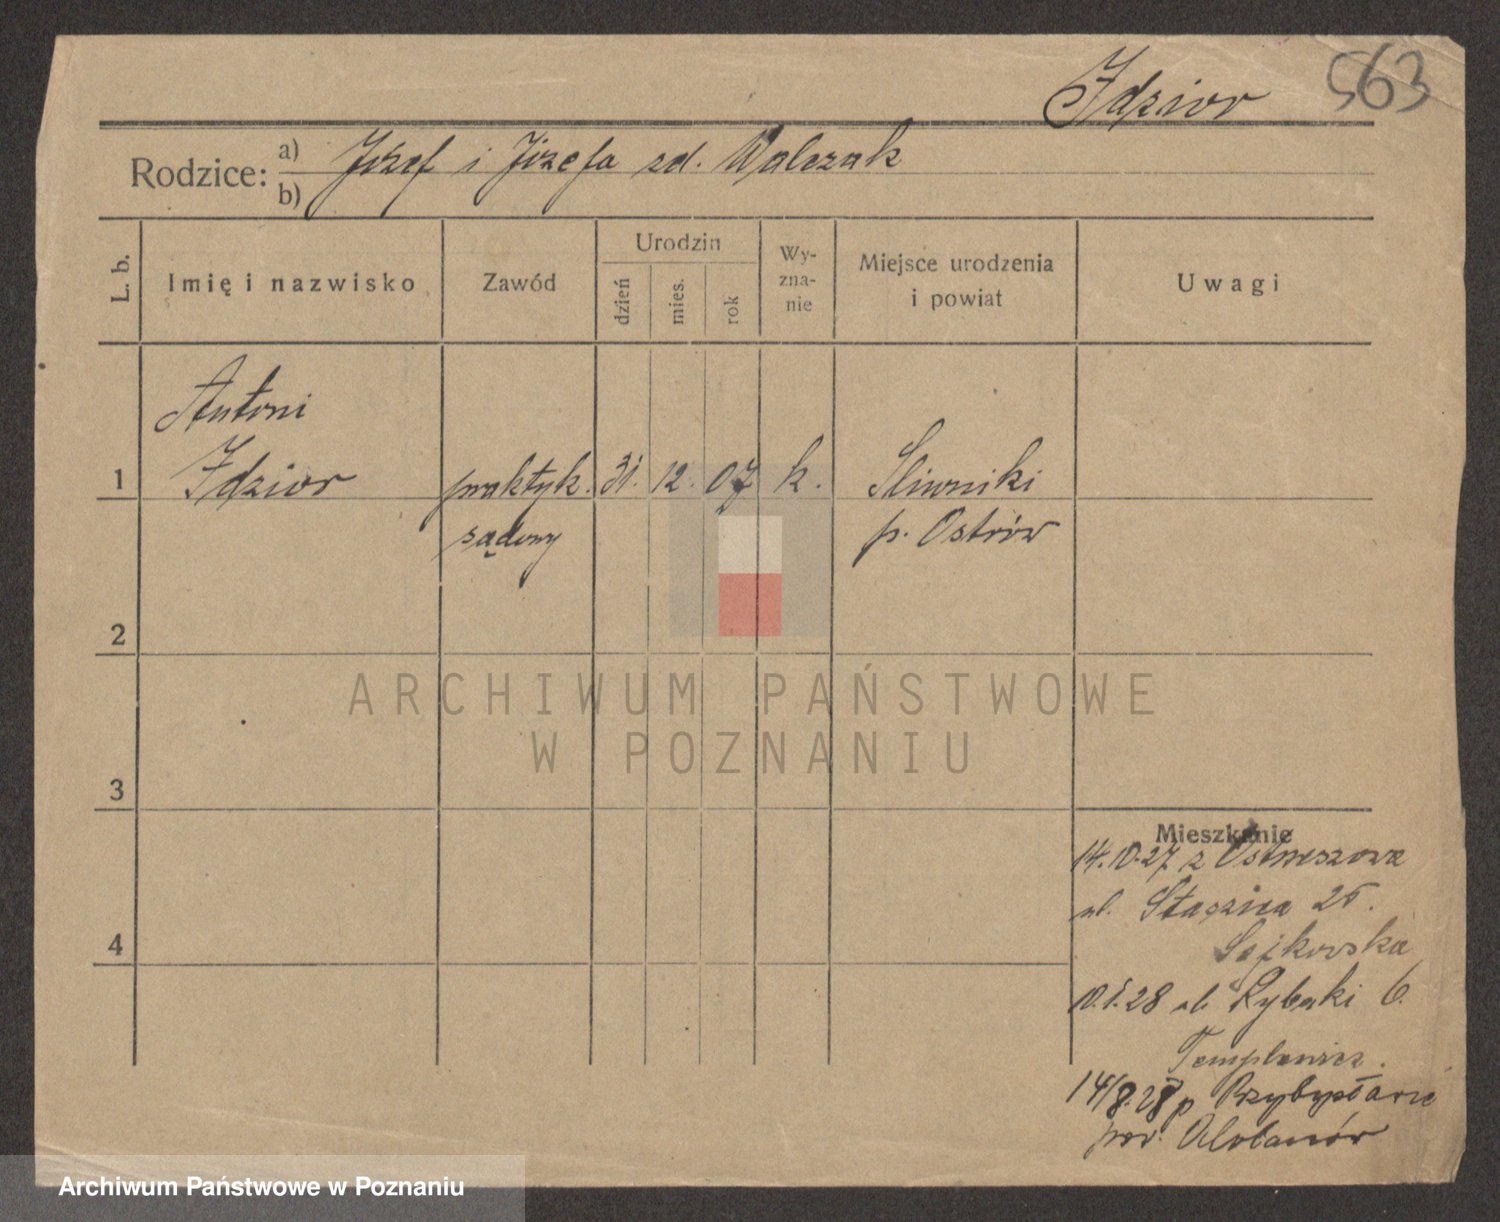 Idzior 563
Rodzice: a) Józef i Józefa zd. Walczak
b)
L. b. Imię i nazwisko Zawód Urodzin dzień mies. rok Wy-zna-nie Miejsce urodzenia i powiat Uwagi
Antoni
1 Idzior praktyk. 31. 12. 07 k. Śliwniki
sądowy p. Ostrów
2
ARCHIWUM PAŃSTWOWE
W POZNANIU
3
Mieszkanie
14.10.27 z Ostrzeszowa
ul. Staszica 25.
4
10.1.28 ul. Rybaki 6.
14/8.28 p
pow.
Archiwum Państwowe w Poznaniu